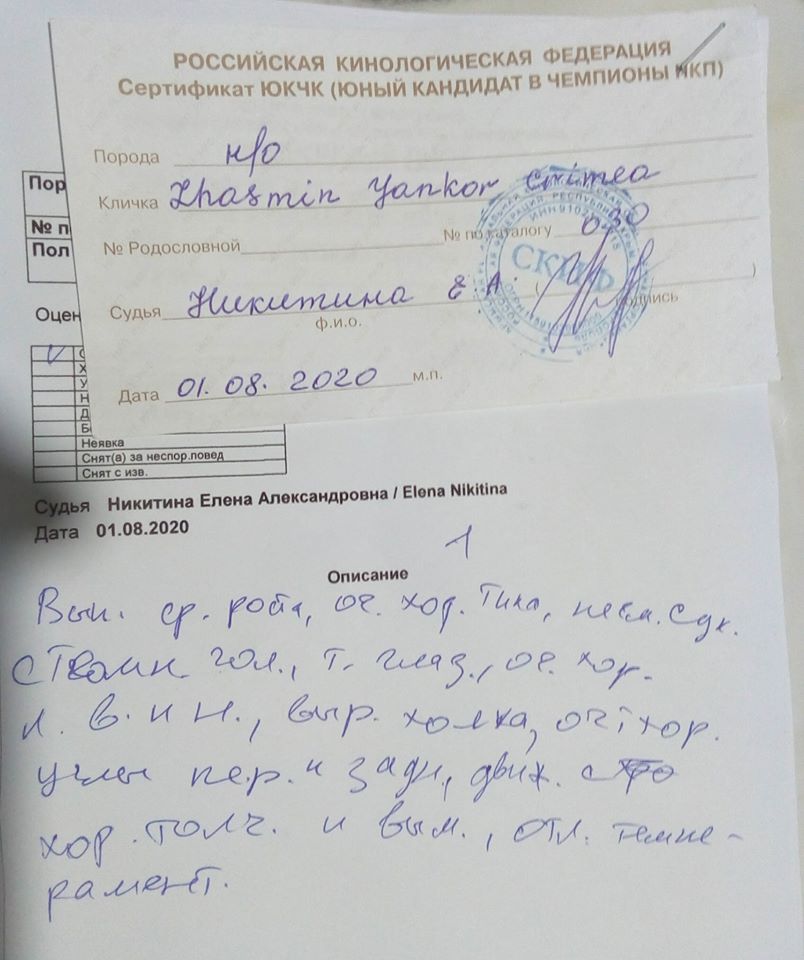 РОССИЙСКАЯ КИНОЛОГИЧЕСКАЯ ФЕДЕРАЦИЯ
Сертификат ЮКЧК (ЮНЫЙ КАНДИДАТ В ЧЕМПИОНЫ НКП)
Порода н/о
Кличка Zhasmin Yankor Crimea
№ Родословной № по каталогу
Судья Никитина Е.А. подпись
ф.и.о.
Дата 01.08.2020 м.п.
СКИФ
Пор
№ п
Пол
Оцен
Неявка
Снят(а) за неспор.повед
Снят с изв.
Судья Никитина Елена Александровна / Elena Nikitina
Дата 01.08.2020
1
Описание
Выш. ср. роста, оч. хор. типа,
гол., т. глаз., оч. хор.
л. в. и н., выр. холка, оч. хор.
углы пер. и задн, движ. с
хор. толч. и вым., отл. темпе-
рамент.